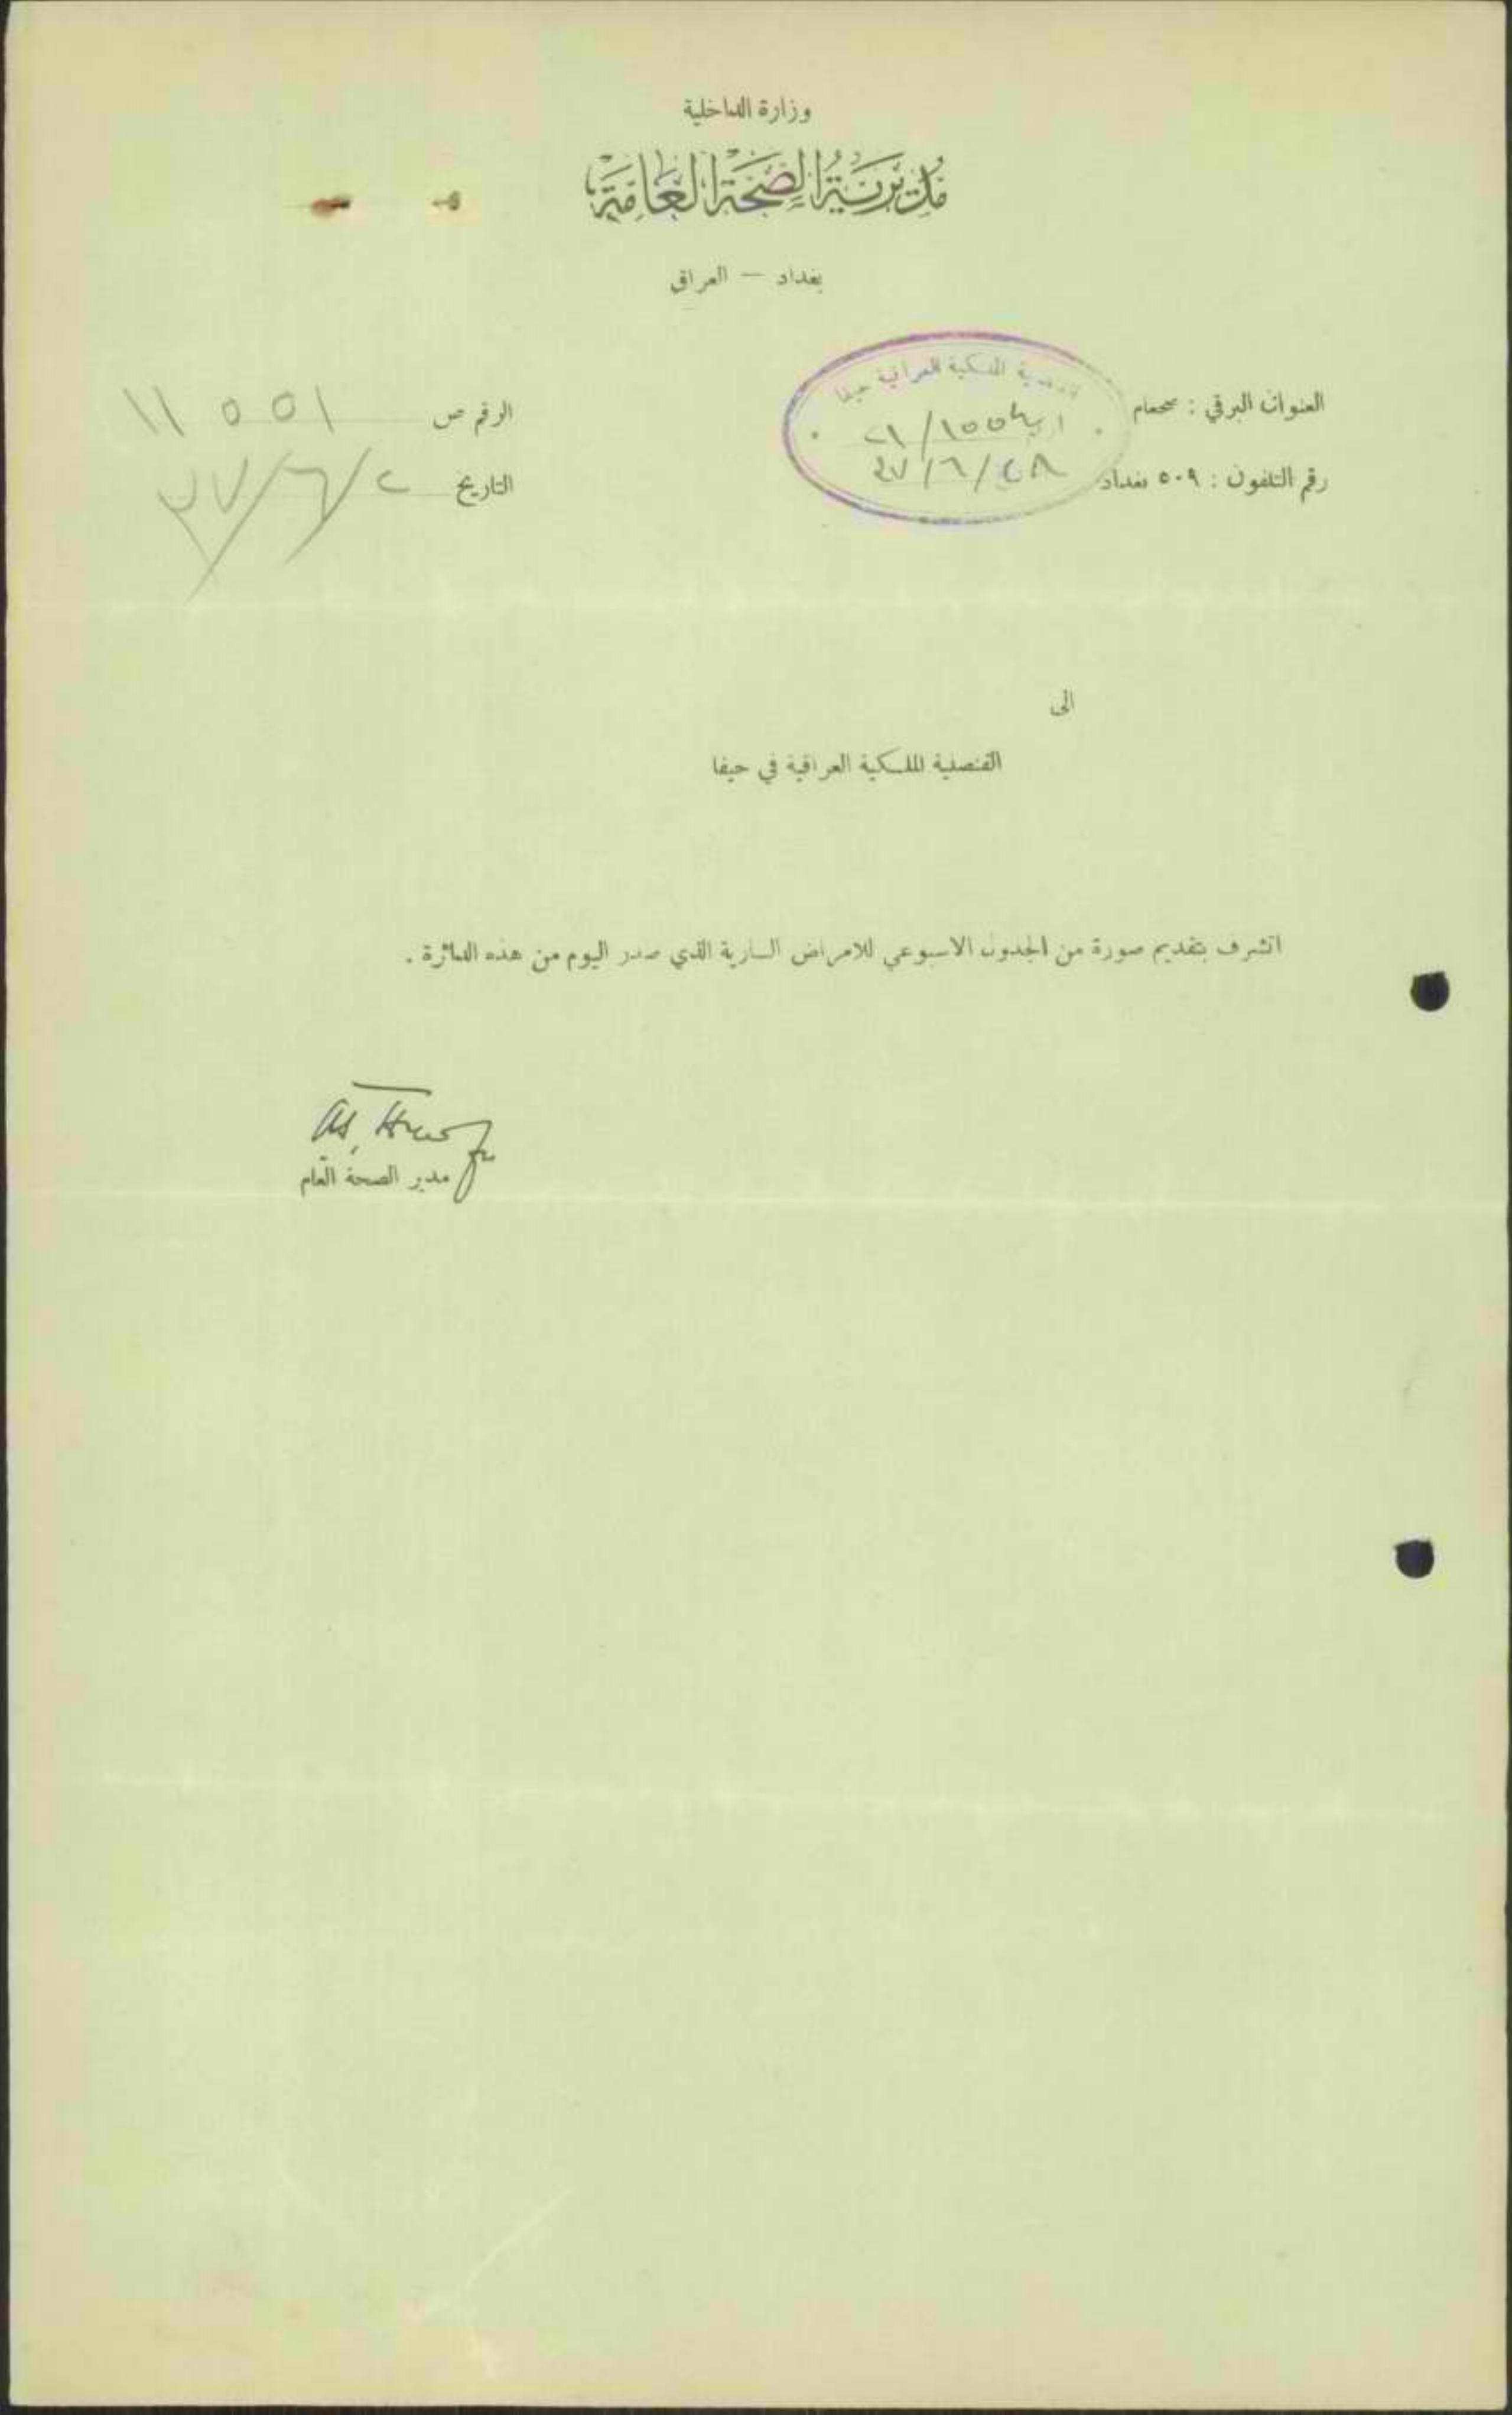 وزارة الداخلية
مُدِيْرِيَّةُ الصِّحَّةِ الْعَامَّةِ
بغداد — العراق
العنوان البرقي : صحعام
رقم التلفون : ٥٠٩ بغداد
الملكية العراقية حيفا
٢١/١٥٥٤
٣٧/٦/٢٨
الرقم ص ١١٥٥١
التاريخ ٢/٦/٣٧
الى
القنصلية الملكية العراقية في حيفا
اتشرف بتقديم صورة من الجدول الاسبوعي للامراض السارية الذي صدر اليوم من هذه الدائرة .
مدير الصحة العام